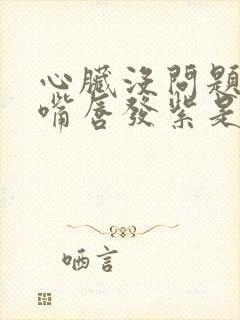 心臟沒問題
嘴唇發紫是
哂言